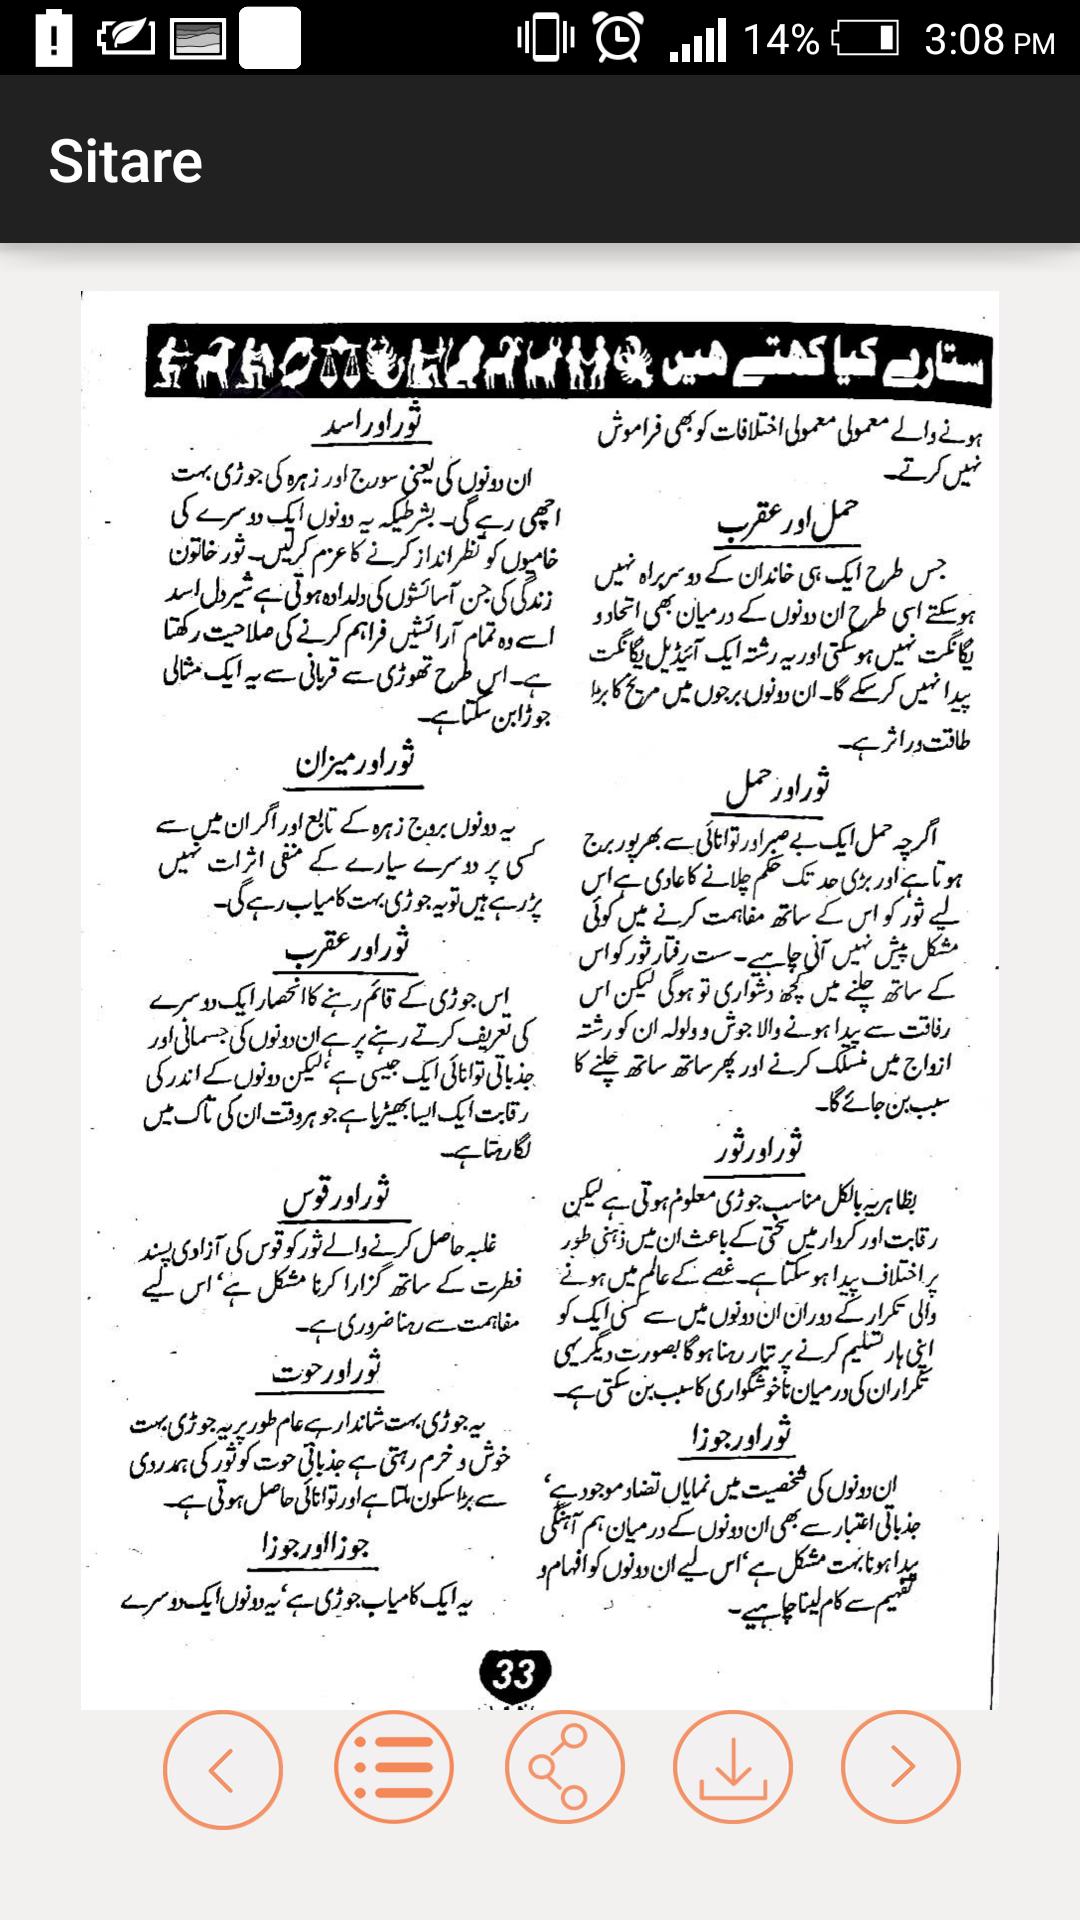 14%
3:08 PM
Sitare
ستارے کیا کہتے ہیں
ہونے والے معمولی معمولی اختلافات کو بھی فراموش
نہیں کرتے۔
حمل اور عقرب
جس طرح ایک ہی خاندان کے دو سربراہ نہیں
ہوسکتے اسی طرح ان دونوں کے درمیان بھی اتحاد و
یگانگت نہیں ہوسکتی اور یہ رشتہ ایک آئیڈیل یگانگت
پیدا نہیں کرسکے گا۔ ان دونوں برجوں میں مریخ کا بڑا
طاقت ور اثر ہے۔
ثور اور حمل
اگرچہ حمل ایک بے صبر اور توانائی سے بھرپور برج
ہوتا ہے اور بڑی حد تک حکم چلانے کا عادی ہے اس
لیے ثور کو اس کے ساتھ مفاہمت کرنے میں کوئی
مشکل پیش نہیں آنی چاہیے۔ ست رفتار ثور کو اس
کے ساتھ چلنے میں کچھ دشواری تو ہوگی لیکن اس
رفاقت سے پیدا ہونے والا جوش و ولولہ ان کو رشتہ
ازواج میں منسلک کرنے اور پھر ساتھ ساتھ چلنے کا
سبب بن جائے گا۔
ثور اور ثور
بظاہر یہ بالکل مناسب جوڑی معلوم ہوتی ہے لیکن
رقابت اور کردار میں سختی کے باعث ان میں ذہنی طور
پر اختلاف پیدا ہوسکتا ہے۔ غصے کے عالم میں ہونے
والی تکرار کے دوران ان دونوں میں سے کسی ایک کو
اپنی ہار تسلیم کرنے پر تیار رہنا ہوگا بصورت دیگر یہی
تکرار ان کی درمیان ناخوشگواری کا سبب بن سکتی ہے۔
ثور اور جوزا
ان دونوں کی شخصیت میں نمایاں تضاد موجود ہے‘
جذباتی اعتبار سے بھی ان دونوں کے درمیان ہم آہنگی
پیدا ہونا بہت مشکل ہے‘ اس لیے ان دونوں کو افہام و
تفہیم سے کام لینا چاہیے۔
ثور اور اسد
ان دونوں کی یعنی سورج اور زہرہ کی جوڑی بہت
اچھی رہے گی۔ بشرطیکہ یہ دونوں ایک دوسرے کی
خامیوں کو نظر انداز کرنے کا عزم کرلیں۔ ثور خاتون
زندگی کی جن آسائشوں کی دلدادہ ہوتی ہے شیر دل اسد
اسے وہ تمام آرائشیں فراہم کرنے کی صلاحیت رکھتا
ہے۔ اس طرح تھوڑی سے قربانی سے یہ ایک مثالی
جوڑا بن سکتا ہے۔
ثور اور میزان
یہ دونوں بروج زہرہ کے تابع اور اگر ان میں سے
کسی پر دوسرے سیارے کے منفی اثرات نہیں
پڑ رہے ہیں تو یہ جوڑی بہت کامیاب رہے گی۔
ثور اور عقرب
اس جوڑی کے قائم رہنے کا انحصار ایک دوسرے
کی تعریف کرتے رہنے پر ہے ان دونوں کی جسمانی اور
جذباتی توانائی ایک جیسی ہے‘ لیکن دونوں کے اندر کی
رقابت ایک ایسا بھیڑیا ہے جو ہر وقت ان کی تاک میں
لگا رہتا ہے۔
ثور اور قوس
غلبہ حاصل کرنے والے ثور کو قوس کی آزادی پسند
فطرت کے ساتھ گزارا کرنا مشکل ہے‘ اس لیے
مفاہمت سے رہنا ضروری ہے۔
ثور اور حوت
یہ جوڑی بہت شاندار ہے عام طور پر یہ جوڑی بہت
خوش و خرم رہتی ہے جذباتی حوت کو ثور کی ہمدردی
سے بڑا سکون ملتا ہے اور توانائی حاصل ہوتی ہے۔
جوزا اور جوزا
یہ ایک کامیاب جوڑی ہے‘ یہ دونوں ایک دوسرے
33